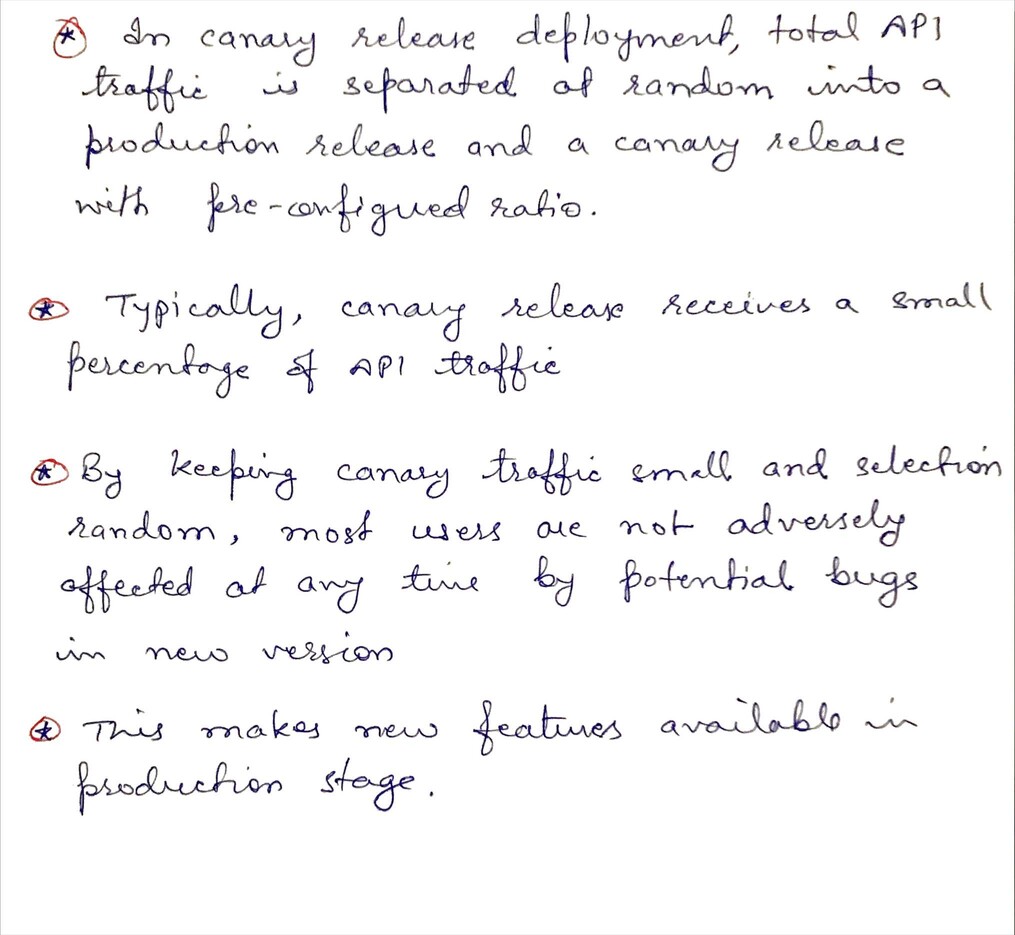 * In canary release deployment, total API
traffic is separated at random into a
production release and a canary release
with pre-configued ratio.
* Typically, canary release receives a small
percentage of API traffic
* By keeping canary traffic small and selection
random, most users are not adversely
affected at any time by potential bugs
in new version
* This makes new features available in
production stage.